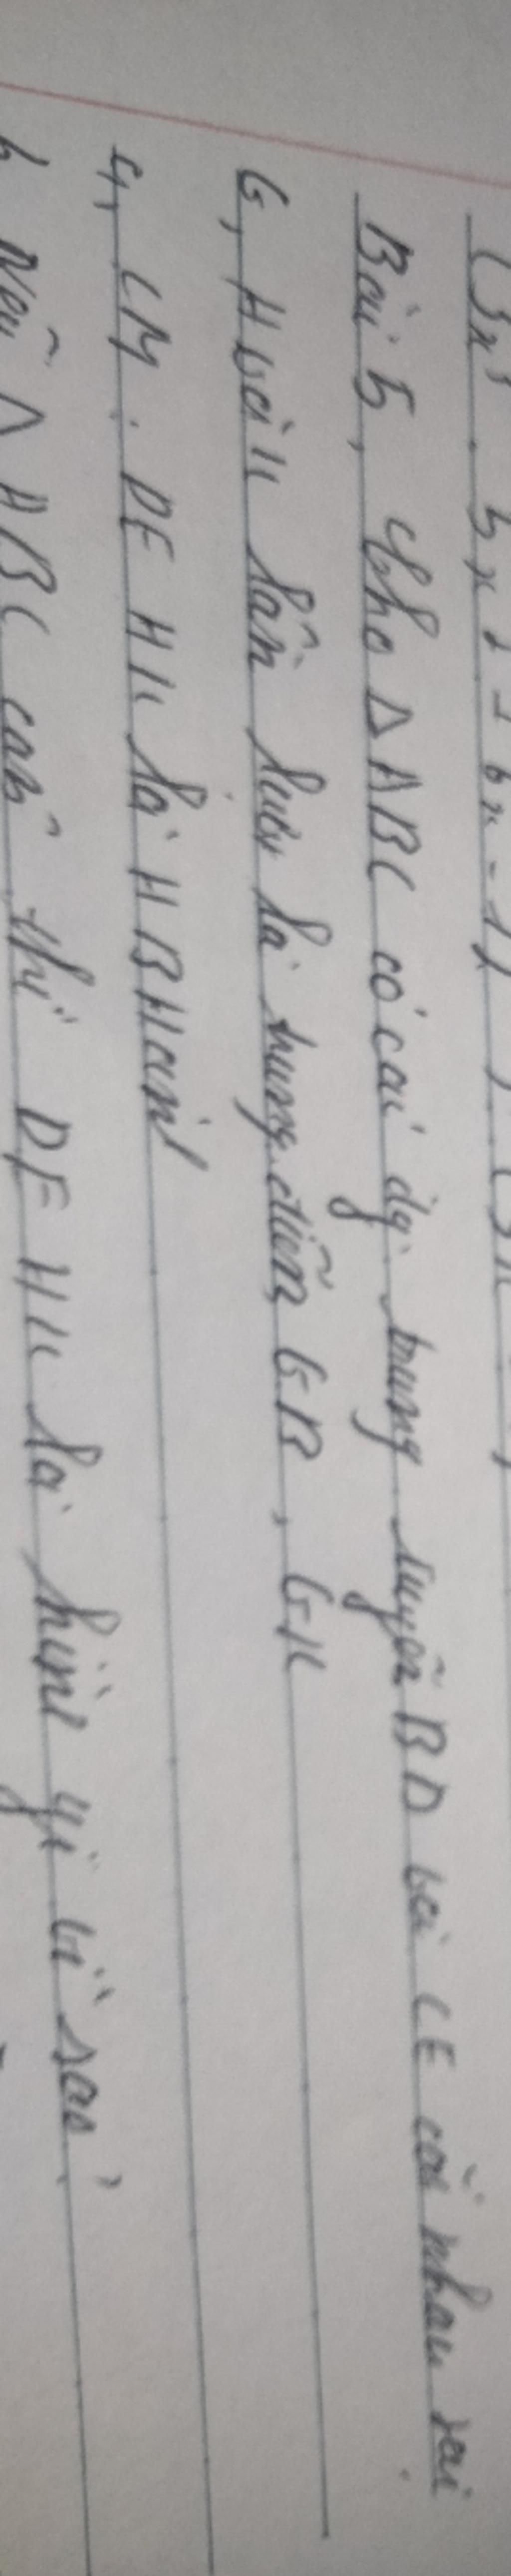 Bài 5, Cho Δ ABC có các đg trung tuyến BD và CE cắt nhau tại
G, H và K lần lượt là trung điểm GB, GK
a, CM. DEHK là HBHành
b, Nếu Δ ABC cân thì DEHK là hình gì vì sao?